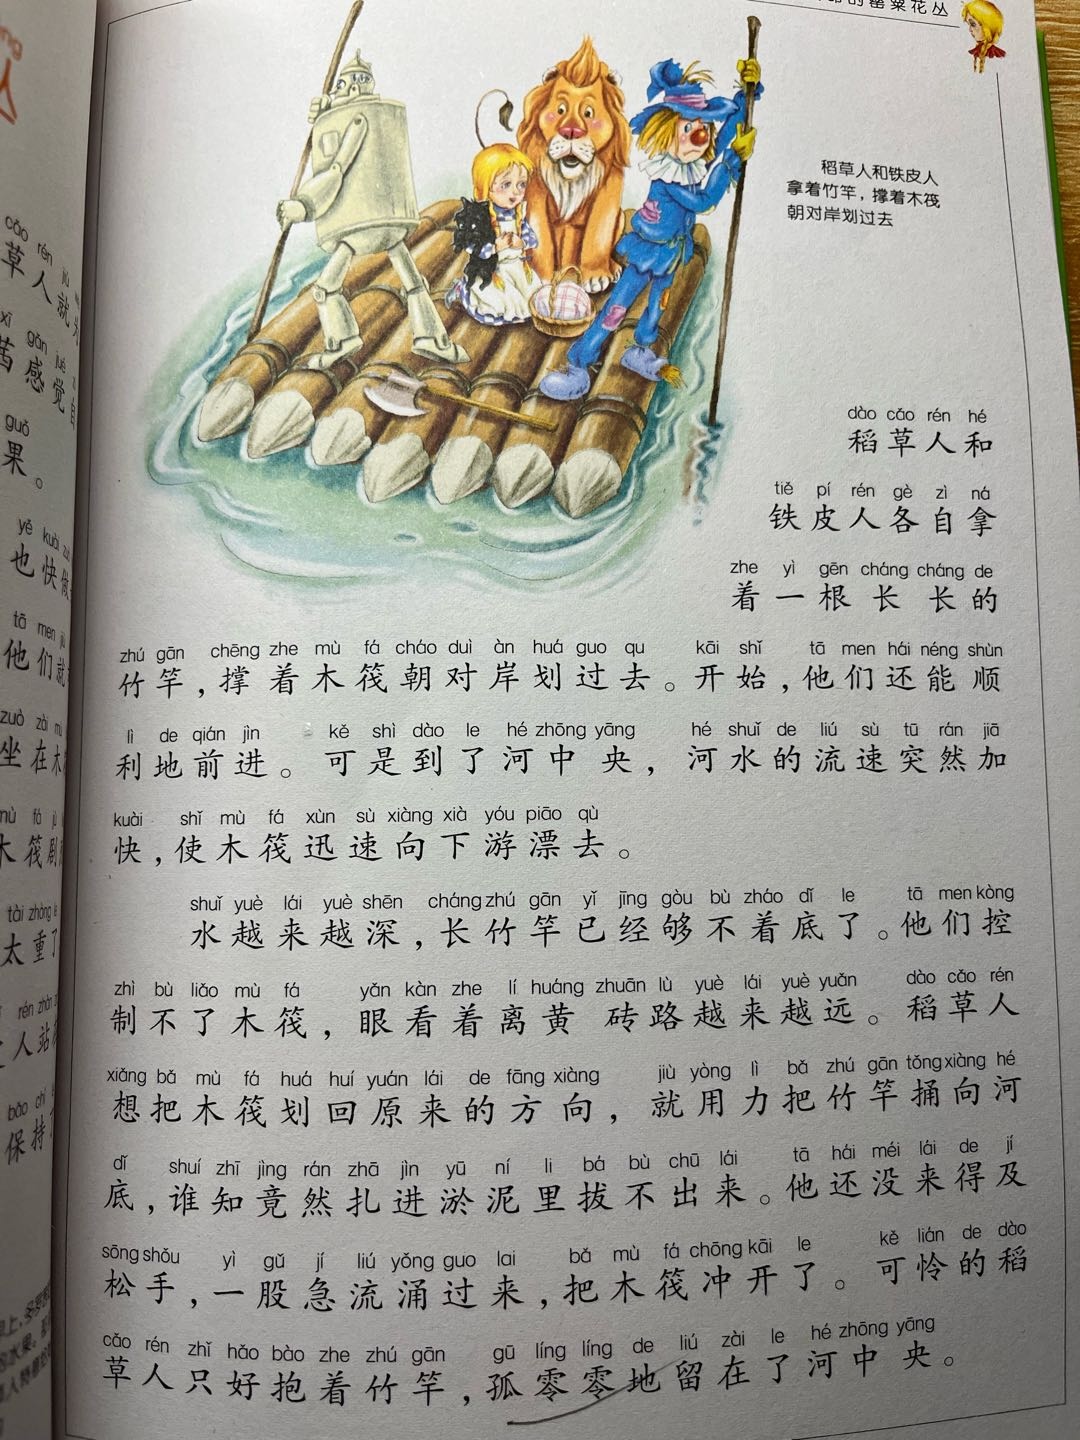 的罂粟花丛
稻草人和铁皮人
拿着竹竿，撑着木筏
朝对岸划过去
dào cǎo rén hé
稻草人和
tiě pí rén gè zì ná
铁皮人各自拿
zhe yì gēn cháng cháng de
着一根长长的
zhú gān chēng zhe mù fá cháo duì àn huá guo qu kāi shǐ tā men hái néng shùn
竹竿，撑着木筏朝对岸划过去。开始，他们还能顺
lì de qián jìn kě shì dào le hé zhōng yāng hé shuǐ de liú sù tū rán jiā
利地前进。可是到了河中央，河水的流速突然加
kuài shǐ mù fá xùn sù xiàng xià yóu piāo qù
快，使木筏迅速向下游漂去。
shuǐ yuè lái yuè shēn cháng zhú gān yǐ jīng gòu bù zháo dǐ le tā men kòng
水越来越深，长竹竿已经够不着底了。他们控
zhì bù liǎo mù fá yǎn kàn zhe lí huáng zhuān lù yuè lái yuè yuǎn dào cǎo rén
制不了木筏，眼看着离黄砖路越来越远。稻草人
xiǎng bǎ mù fá huá huí yuán lái de fāng xiàng jiù yòng lì bǎ zhú gān tǒng xiàng hé
想把木筏划回原来的方向，就用力把竹竿捅向河
dǐ shuí zhī jìng rán zhā jìn yū ní li bá bù chū lái tā hái méi lái de jí
底，谁知竟然扎进淤泥里拔不出来。他还没来得及
sōng shǒu yì gǔ jí liú yǒng guo lai bǎ mù fá chōng kāi le kě lián de dào
松手，一股急流涌过来，把木筏冲开了。可怜的稻
cǎo rén zhǐ hǎo bào zhe zhú gān gū líng líng de liú zài le hé zhōng yāng
草人只好抱着竹竿，孤零零地留在了河中央。
cǎo rén jiù
草人就
gǎn jué
感觉
guǒ
果。
yě kuài
也快做
tā men jiù
他们就
zuò zài mù
坐在木
mù fá
木筏
tài zhòng le
太重了
rén zhàn
人站
bǎo chí
保持